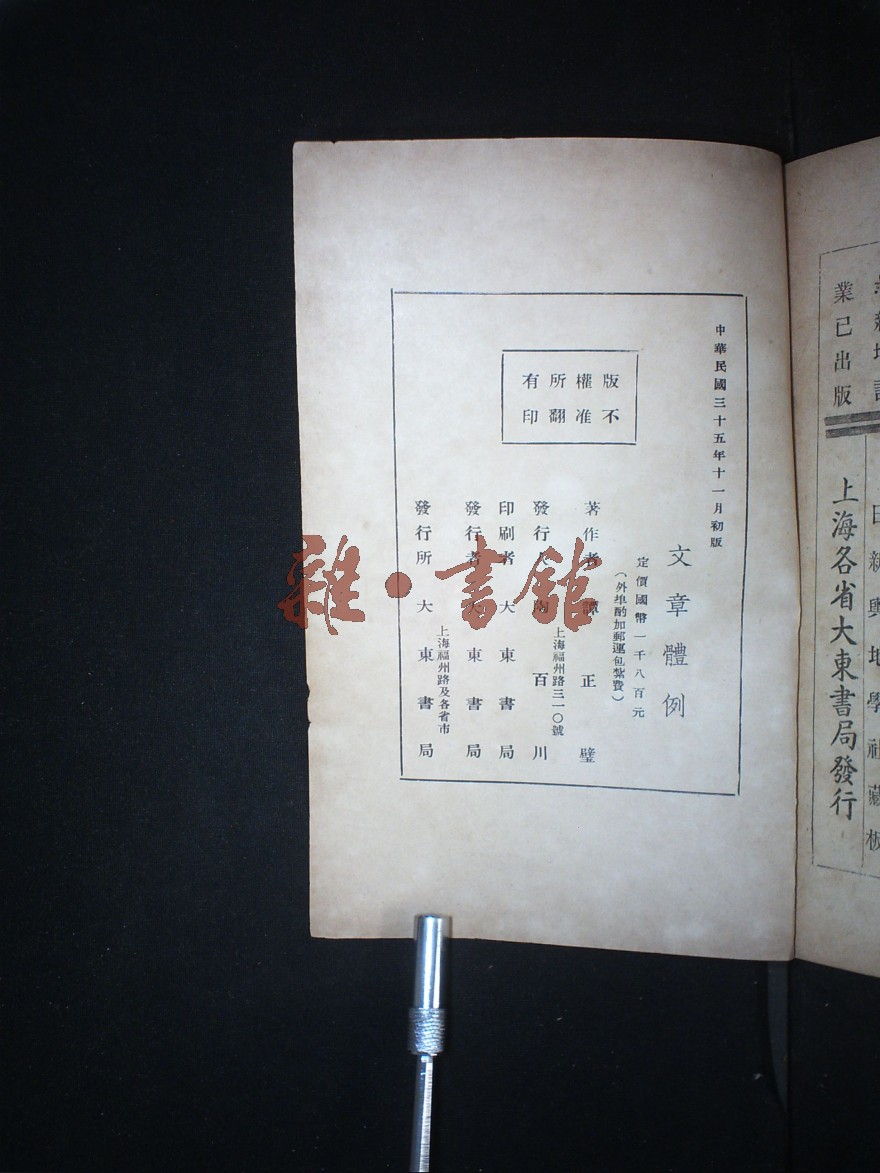 業已出版
上海各省大東書局發行
日新輿地學社藏板
中華民國三十五年十一月初版
版權所有
不准翻印
文章體例
定價國幣一千八百元
（外埠酌加郵運包紮費）
著作者 譚正璧
發行人 陶百川
上海福州路三一〇號
印刷者 大東書局
發行者 大東書局
上海福州路及各省市
發行所 大東書局
雜·書館